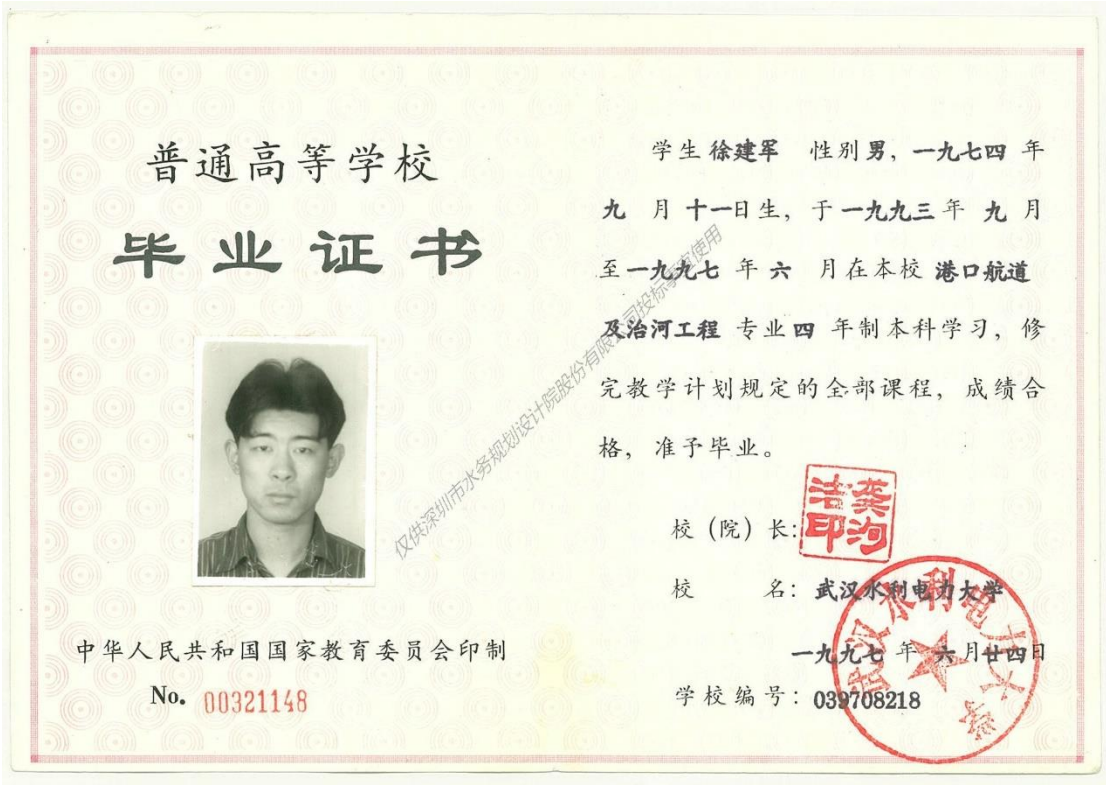 普通高等学校
毕业证书
中华人民共和国国家教育委员会印制
No. 00321148
学生 徐建军 性别 男, 一九七四 年
九 月 十一日生, 于 一九九三 年 九 月
至 一九九七 年 六 月在本校 港口航道
及治河工程 专业 四 年制本科学习, 修
完教学计划规定的全部课程, 成绩合
格, 准予毕业。
校(院)长:
龚洵
洁印
校 名: 武汉水利电力大学
一九九七 年 六 月廿四日
学校编号: 039708218
武汉水利电力大学